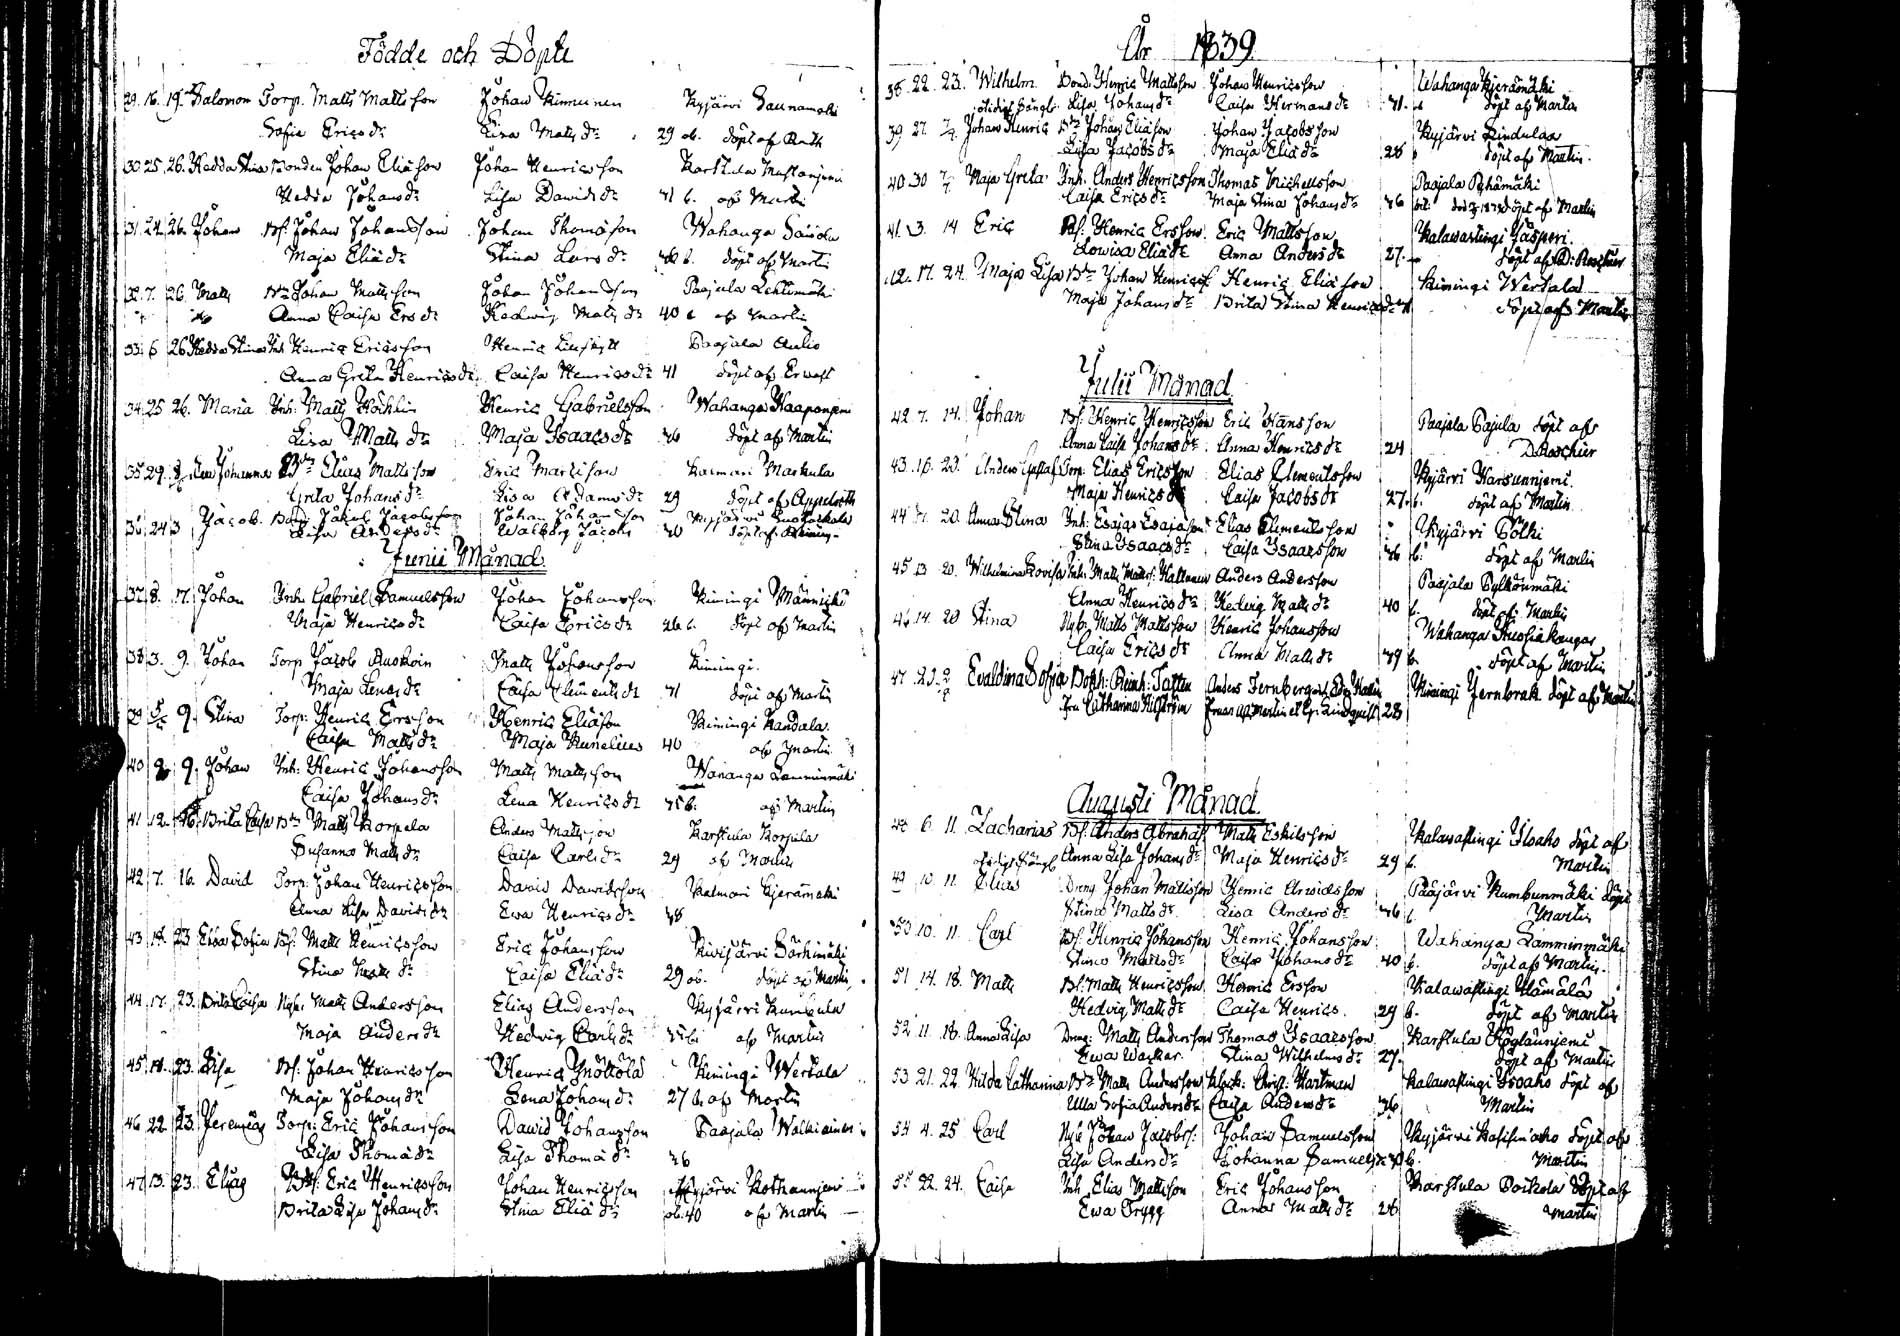 Födde och Döpte
29. 16. 19. Salomon Torp. Matts Mattsson Johan Kinnunen Kyjärvi Saunamäki
Sofia Ericsdr Lisa Mattsdr 29 ob. döpt af Rath
30 25 26. Hedda Stina Bonden Johan Eliæson Johan Henricsson Karstula Mustanjemi
Hedda Johansdr Lisa Davidsdr 41 b. af Martin
31. 24. 26. Johan Bs. Johan Johansson Johan Thomæson Wahanga
Maja Eliædr Stina Larsdr b. döpt af Martin
32. 7. 26. Matts Bdn Johan Mattsson Johan Johansson Paajala Lehtimäki
Anna Caisa Ersdr Hedwig Mattsdr 40 af Martin
33. 6 26 Hedda Stina Inh. Henric Ericsson Henric Paajala Aulio
Anna Greta Henricsdr Caisa Henricsdr 41 döpt af Erwast
34. 25 26. Maria Inh: Matts Henric Gabrielsson Wahanga Haaponjemi
Lisa Mattsdr Maja Isaacsdr 36 döpt af Martin
35 29. Johanna Bdn Elias Mattsson Eric Mattsson Kalmari Markula
Greta Johansdr Lisa Adamsdr 29 döpt af Appelroth
36. 24 3 Jacob. Jakob Jacobsson Johan Johansson Kyjärvi
Lisa Andersdr Walborg Jacobs 40 döpt af
Junii Månad.
37. 8. 17. Johan Inh. Gabriel Samuelsson Johan Johansson Kimingi Männickö
Maja Henricsdr Caisa Ericsdr 26 b. döpt af Martin
38 3. 9. Johan Torp Jacob Ruskoin Matts Johansson Kimingi.
Maja Larsdr Caisa Clementsdr 41 döpt af Martin
39 5/6 9. Stina Torp: Henric Ersson Henric Eliæson Kimingi Kandala.
Caisa Mattsdr Maja Kunelius 40 af Martin
40 2 9. Johan Inh: Henric Johansson Matts Mattsson Wahanga Lamminmäki
Caisa Johansdr Lena Henricsdr 35 b. af Martin
41. 12. 16. Brita Caisa Bdn Matts Korpela Anders Mattsson Karstula Korpela
Susanna Mattsdr Caisa Carlsdr 29 af Martin
42 7. 16. David Torp: Johan Henricsson David Davidsson Kalmari Kjerämäki
Anna Lisa Davidsdr Ewa Henricsdr 38
43 18. 23 Ewa Sofia Bs. Matts Henricsson Eric Johansson Kivijärvi Sorkimäki
Stina Mattsdr Caisa Eliædr 29 ob. döpt af Martin
44 17. 23. Brita Caisa Nyb. Matts Andersson Elias Andersson Kyjärvi Kumpula
Maja Andersdr Hedwig Carlsdr 35 b. af Martin
45 18. 23. Lisa Bs. Johan Henricsson Henric Knöttölä Kimingi Wertala
Maja Johansdr Lena Johansdr 27 b. af Martin
46 22. 23. Jeremias Torp: Eric Johansson David Johansson Paajala Walkiainen
Lisa Thomædr Lisa Thomædr 26
47. 13. 23. Elias Bs: Eric Henricsson Johan Henricsson Kyjärvi Kothannjemi
Brita Lisa Johansdr Stina Eliædr ob. 40 af Martin
År 1839
38. 22. 23. Wilhelm Bond. Henric Mattsson Johan Henricsson Wahanga Kjerämäki
Lisa Johansdr Caisa Hermansdr 41. döpt af Martin
39. 27. 7/7 Johan Henric Bdn Johan Eliæson Johan Jacobsson Kyjärvi Lindulaa
Lisa Jacobsdr Maja Eliædr 28 döpt af Martin.
40. 30 7/7 Maja Greta Inh. Anders Henricsson Thomas Michelsson Paajala Pohämäki
Caisa Ericsdr Maja Stina Johansdr 36 döpt af Martin
41. 3. 14 Eric Bs: Henric Ersson. Eric Mattsson Kalawastingi Jasperi.
Lowisa Eliædr Anna Andersdr 27. döpt af D: Roschier
12. 17. 24. Maja Lisa Bdn Johan Henricss. Henric Eliæson Kimingi Wertala
Maja Johansdr Brita Stina Henricsdr döpt af Martin
Julii Månad
42. 7. 14. Johan Bs. Henric Henricsson Eric Hansson Paajala Pajula döpt af
Anna Caisa Johansdr Anna Henricsdr 24 D. Roschier
43. 16. 20. Anders Gustaf Torp: Elias Ericsson Elias Clementsson Kyjärvi Harsunnjemi.
Maja Henricsdr Caisa Jacobsdr 27. b. döpt af Martin
44 20. Anna Stina Inh: Esaias Esaiasson Elias Clementsson Kyjärvi Pölki
Stina Isaacsdr Caisa Isaacsson 36 b. döpt af Martin
45. 13 20. Wilhelmina Lovisa Inh: Matts Matts. Haltunen Anders Andersson Paajala Pylkönmäki
Anna Henricsdr Hedvig Mattsdr 40 b. döpt af Martin
46. 14. 20 Stina Nyb. Matts Mattsson Henric Johansson Wahanga Huosiakangas
Caisa Ericsdr Anna Mattsdr 39 b. döpt af Martin
47 Evaldina Sofia Bokh: Reinh: Tallen Anders Fernberg Kimingi Jernbruk döpt af Martin
Fru Catharina 28
Augusti Månad.
48 6. 11. Zacharias Bs. Anders Abrahas. Matts Eskilsson Kalawastingi Isoaho döpt af
Anna Lisa Johansdr Maja Henricsdr 29 b. Martin
49 10. 11. Elias Dreng Johan Mattsson Henric Arwidsson Pääjärvi Kumbunmäki döpt
Stina Mattsdr Lisa Andersdr 36 b. Martin
50. 10. 11. Carl Bs. Henric Johansson Henric Johansson Wahanga Lamminmäki
Stina Mattsdr Caisa Johansdr 40 b. döpt af Martin.
51 14. 18. Matts Bs: Matts Henricsson Henric Ersson Kalawastingi Hämälä
Hedvig Mattsdr Caisa Henrics. 29 b. döpt af Martin
52. 11. 18. Anna Lisa Dreng: Matts Andersson Thomas Isaacsson Karstula
Ewa Wacker Stina Wilhelmsdr 27. döpt af Martin
53. 21. 22. Hilda Catharina Bdn Matts Andersson Klock: Christ: Hartman Kalawastingi Isoaho döpt af
Ulla Sofia Andersdr Caisa Andersdr 36 Martin
54 4. 25 Carl Nyb Johan Jacobss: Johan Samuelsson Kyjärvi döpt af
Lisa Andersdr Johanna Samuelsdr 30 b. Martin
55 22. 24. Caisa Inh. Elias Mattsson Eric Johansson Karstula Poikola döpt af
Ewa Trygg Anna Mattsdr 26 Martin